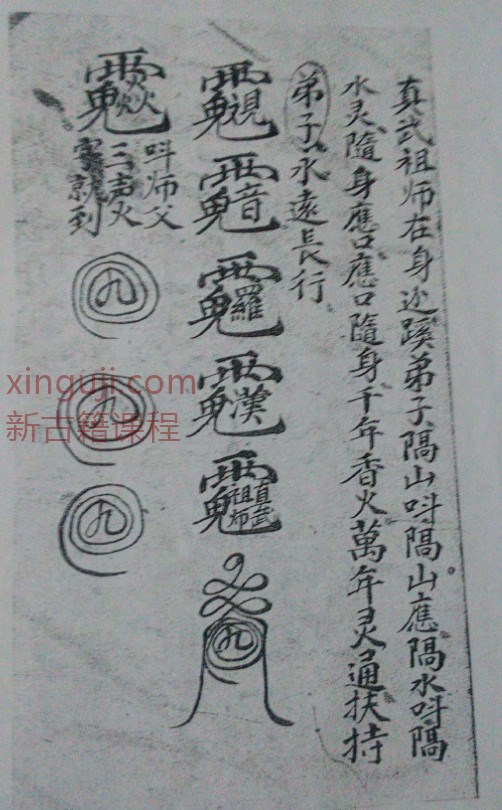 真武祖师在身边蹊弟子隔山呌隔山應隔水呌隔
水灵隨身應口應口隨身千年香火萬年灵通扶持
弟子永遠長行
觀
音
羅
漢
真武祖师
呌师父
三声火
就到
九
九
九
九
xinguji.com
新古籍课程